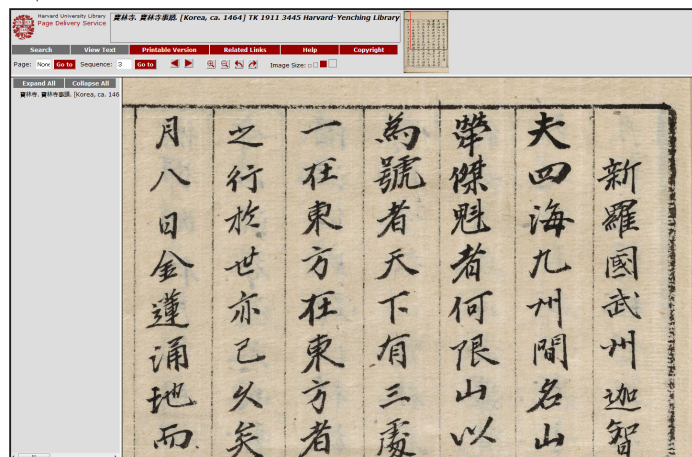 Harvard University Library
Page Delivery Service
寶林寺. 寶林寺事蹟. [Korea, ca. 1464] TK 1911 3445 Harvard-Yenching Library
Search View Text Printable Version Related Links Help Copyright
Page: None Go to Sequence: 3 Go to Image Size:
Expand All Collapse All
寶林寺. 寶林寺事蹟. [Korea, ca. 146
新羅國武州迦智
夫四海九州間名山
犖傑魁者何限山以
為號者天下有三處
一在東方在東方者
之行於世亦已久矣
月八日金蓮涌地而